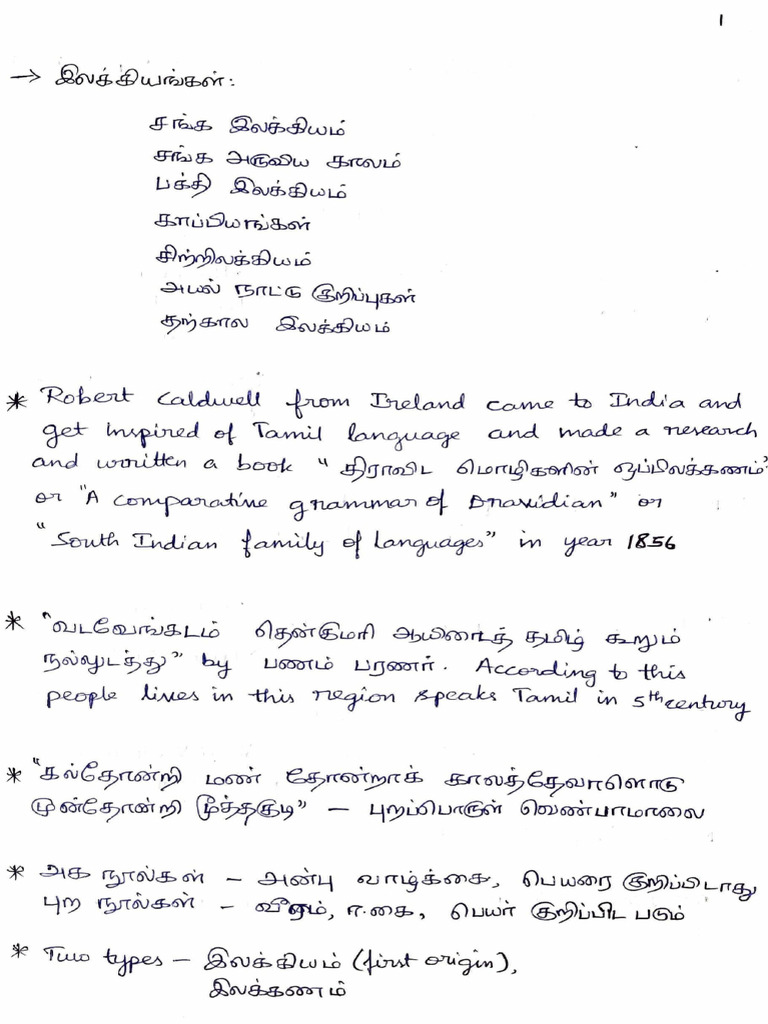 1
→ இலக்கியங்கள்:
சங்க இலக்கியம்
சங்க அருவிய காலம்
பக்தி இலக்கியம்
காப்பியங்கள்
சிற்றிலக்கியம்
அயல் நாட்டு குறிப்புகள்
தற்கால இலக்கியம்
* Robert Caldwell from Ireland came to India and
get inspired of Tamil language and made a research
and written a book "திராவிட மொழிகளின் ஒப்பிலக்கணம்"
or "A comparative grammar of Dravidian" or
"South Indian family of languages" in year 1856
* "வடவேங்கடம் தென்குமரி ஆயிடைத் தமிழ் கூறும்
நல்லுடத்து" by பணம் பரணர். According to this
people lives in this region speaks Tamil in 5th century
* "கல்தோன்றி மண் தோன்றாக் காலத்தேவாளொடு
முன்தோன்றி மூத்தகுடி" – புறப்பொருள் வெண்பாமாலை
* அக நூல்கள் – அன்பு வாழ்க்கை, பெயரை குறிப்பிடாது
புற நூல்கள் – வீரம், ஈகை, பெயர் குறிப்பிட படும்
* Two types – இலக்கியம் (first origin),
இலக்கணம்